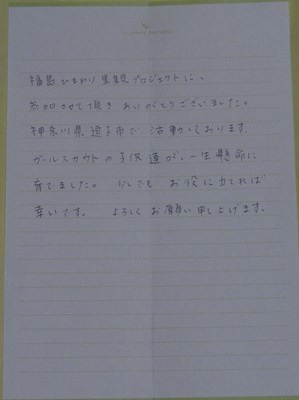 福島ひまわり里親プロジェクトに、
参加させて頂きありがとうございました。
神奈川県逗子市で活動しております
ガールスカウトの子供達が、一生懸命に
育てました。少しでもお役に立てれば
幸いです。よろしくお願い申し上げます。